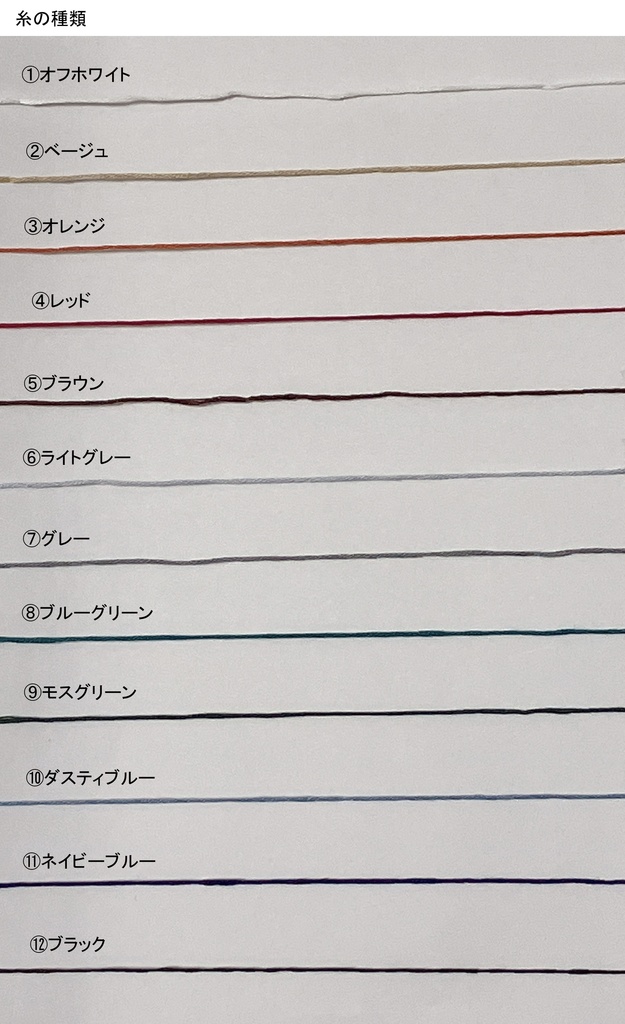 糸の種類
①オフホワイト
②ベージュ
③オレンジ
④レッド
⑤ブラウン
⑥ライトグレー
⑦グレー
⑧ブルーグリーン
⑨モスグリーン
⑩ダスティブルー
⑪ネイビーブルー
⑫ブラック